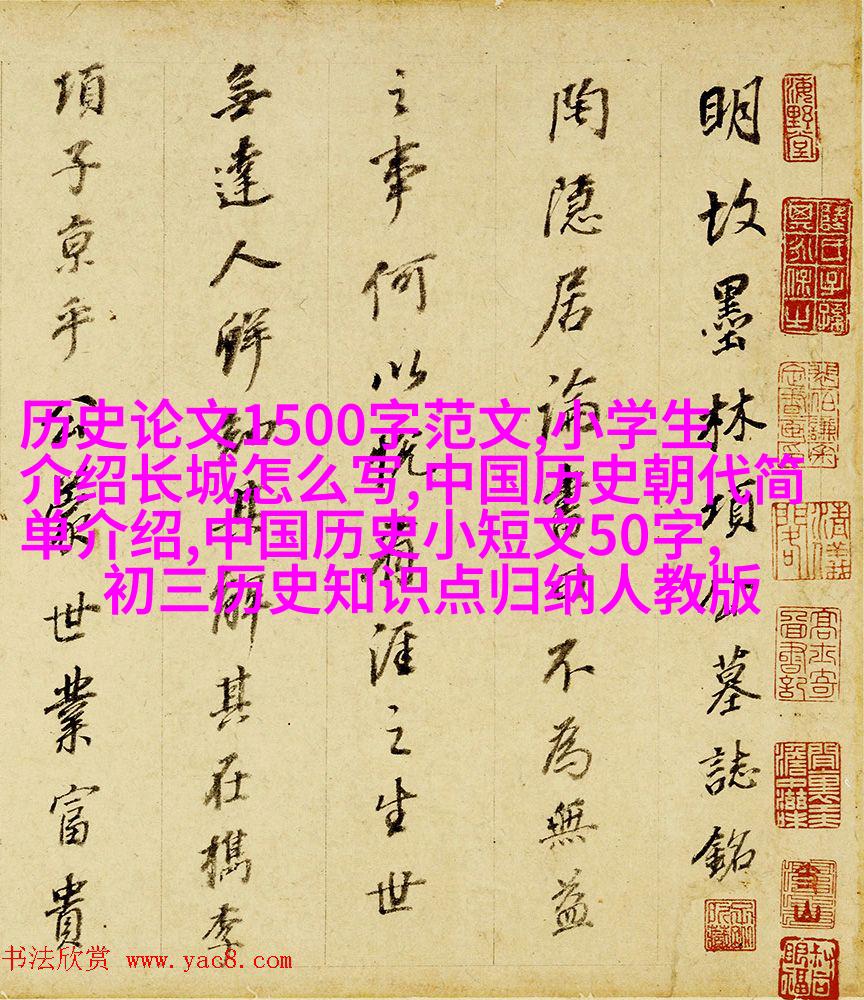 明故墨林項公墓誌銘
陶隱居論書不為無益
之事何以悅有涯之生世
無達人鮮其解其在檇李
項子京乎公蒙世業富貴
历史论文1500字范文,小学生
介绍长城怎么写,中国历史朝代简
单介绍,中国历史小短文50字,
初三历史知识点归纳人教版
海野堂
书法欣赏 www.yac8.com